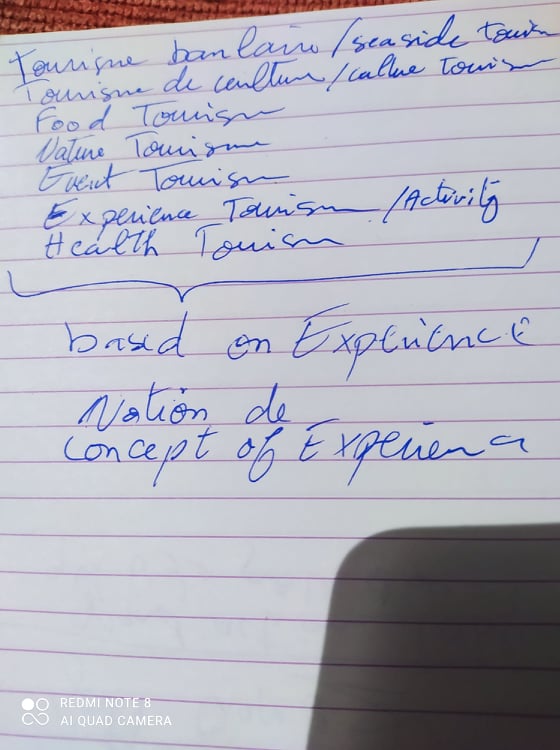 Tourisme banlaire / seaside tourism
Tourisme de culture / culture Tourism
Food Tourism
Nature Tourism
Event Tourism
Experience Tourism / Activity
Health Tourism
based on Experience
Notion de
concept of Experience
REDMI NOTE 8
AI QUAD CAMERA